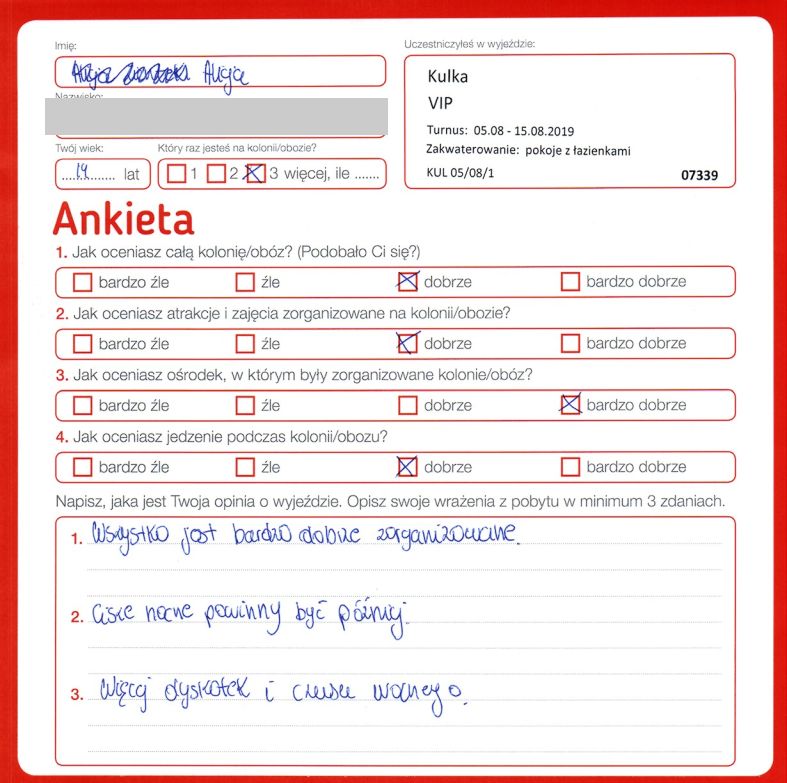 Imię:
Uczestniczyłeś w wyjeździe:
Alicja Alicja
Kulka
VIP
Nazwisko:
Turnus: 05.08 - 15.08.2019
Zakwaterowanie: pokoje z łazienkami
KUL 05/08/1 07339
Twój wiek: Który raz jesteś na kolonii/obozie?
14 lat 1 2 3 więcej, ile .......
Ankieta
1. Jak oceniasz całą kolonię/obóz? (Podobało Ci się?)
bardzo źle źle dobrze bardzo dobrze
2. Jak oceniasz atrakcje i zajęcia zorganizowane na kolonii/obozie?
bardzo źle źle dobrze bardzo dobrze
3. Jak oceniasz ośrodek, w którym były zorganizowane kolonie/obóz?
bardzo źle źle dobrze bardzo dobrze
4. Jak oceniasz jedzenie podczas kolonii/obozu?
bardzo źle źle dobrze bardzo dobrze
Napisz, jaka jest Twoja opinia o wyjeździe. Opisz swoje wrażenia z pobytu w minimum 3 zdaniach.
1. Wszystko jest bardzo dobrze zorganizowane.
2. Cisze nocne powinny być później.
3. Więcej dyskotek i czasu wolnego.